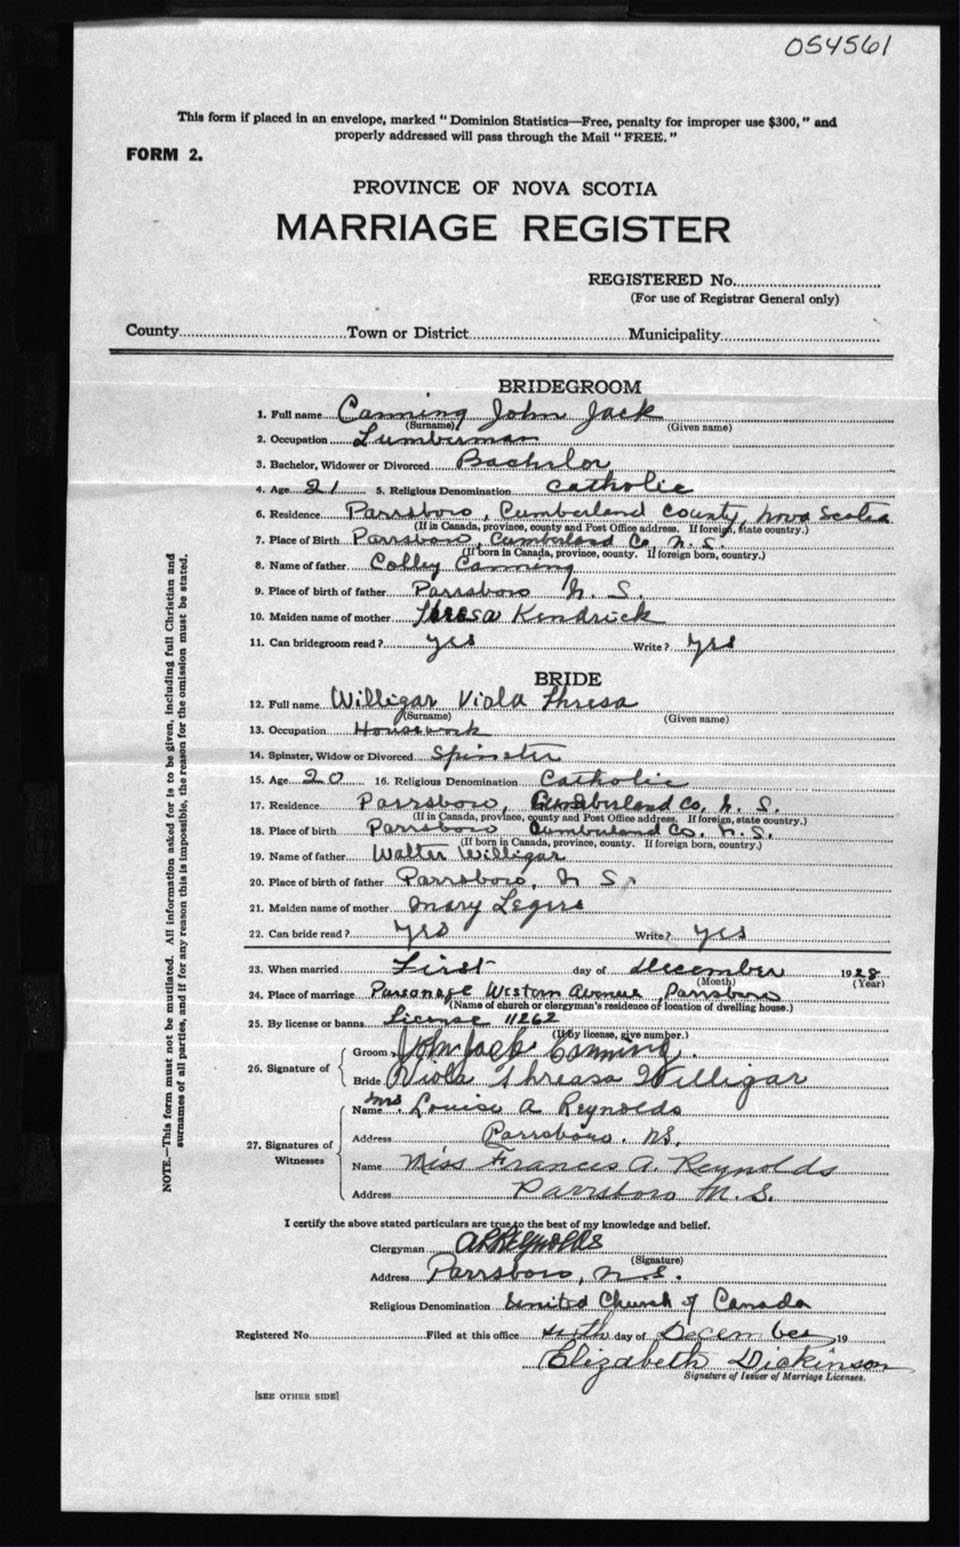 054561
This form if placed in an envelope, marked "Dominion Statistics—Free, penalty for improper use $300," and
properly addressed will pass through the Mail "FREE."
FORM 2.
PROVINCE OF NOVA SCOTIA
MARRIAGE REGISTER
REGISTERED No.
(For use of Registrar General only)
County Town or District Municipality
BRIDEGROOM
1. Full name Canning John Jack
(Surname) (Given name)
2. Occupation Lumberman
3. Bachelor, Widower or Divorced Bachelor
4. Age 21 5. Religious Denomination Catholic
6. Residence Parrsboro, Cumberland County, Nova Scotia
(If in Canada, province, county and Post Office address. If foreign, state country.)
7. Place of Birth Parrsboro, Cumberland Co N.S.
(If born in Canada, province, county. If foreign born, country.)
8. Name of father Colley Canning
9. Place of birth of father Parrsboro N. S.
10. Maiden name of mother Theresa Kendrick
11. Can bridegroom read? yes Write? yes
BRIDE
12. Full name Willigar Viola Thresa
(Surname) (Given name)
13. Occupation Housework
14. Spinster, Widow or Divorced Spinster
15. Age 20 16. Religious Denomination Catholic
17. Residence Parrsboro, Cumberland Co, N. S.
(If in Canada, province, county and Post Office address. If foreign, state country.)
18. Place of birth Parrsboro Cumberland Co. N.S.
(If born in Canada, province, county. If foreign born, country.)
19. Name of father Walter Willigar
20. Place of birth of father Parrsboro, N S.
21. Maiden name of mother Mary Legere
22. Can bride read? yes Write? yes
23. When married First day of December 1928
(Month) (Year)
24. Place of marriage Parsonage Western Avenue, Parrsboro
(Name of church or clergyman's residence or location of dwelling house.)
25. By license or banns License 11262
(If by license, give number.)
26. Signature of
Groom John Jack Canning.
Bride Viola Threasa Willigar
27. Signatures of Witnesses
Name Mrs. Louise A Reynolds
Address Parrsboro. NS.
Name Miss Frances A. Reynolds
Address Parrsboro N. S.
I certify the above stated particulars are true to the best of my knowledge and belief.
Clergyman Reynolds
(Signature)
Address Parrsboro, N.S.
Religious Denomination United Church of Canada
Registered No. Filed at this office sixth day of December 19
Elizabeth Dickinson
Signature of Issuer of Marriage Licenses.
[SEE OTHER SIDE]
NOTE.—This form must not be mutilated. All information asked for is to be given, including full Christian and
surnames of all parties, and if for any reason this is impossible, the reason for the omission must be stated.